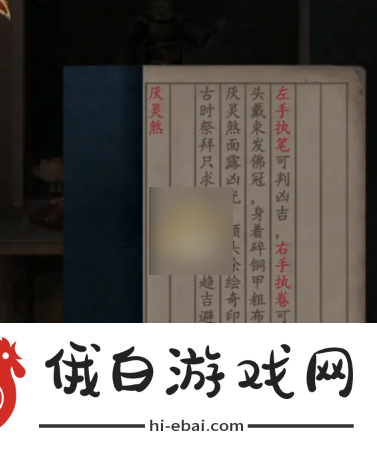 厌灵煞
古时祭拜只求 趋吉避
厌灵煞面露凶光 额头涂绘奇印
头戴束发佛冠，身着碎铜甲粗布
左手执笔可判凶吉，右手执卷可
俄白游戏网
hi-ebai.com